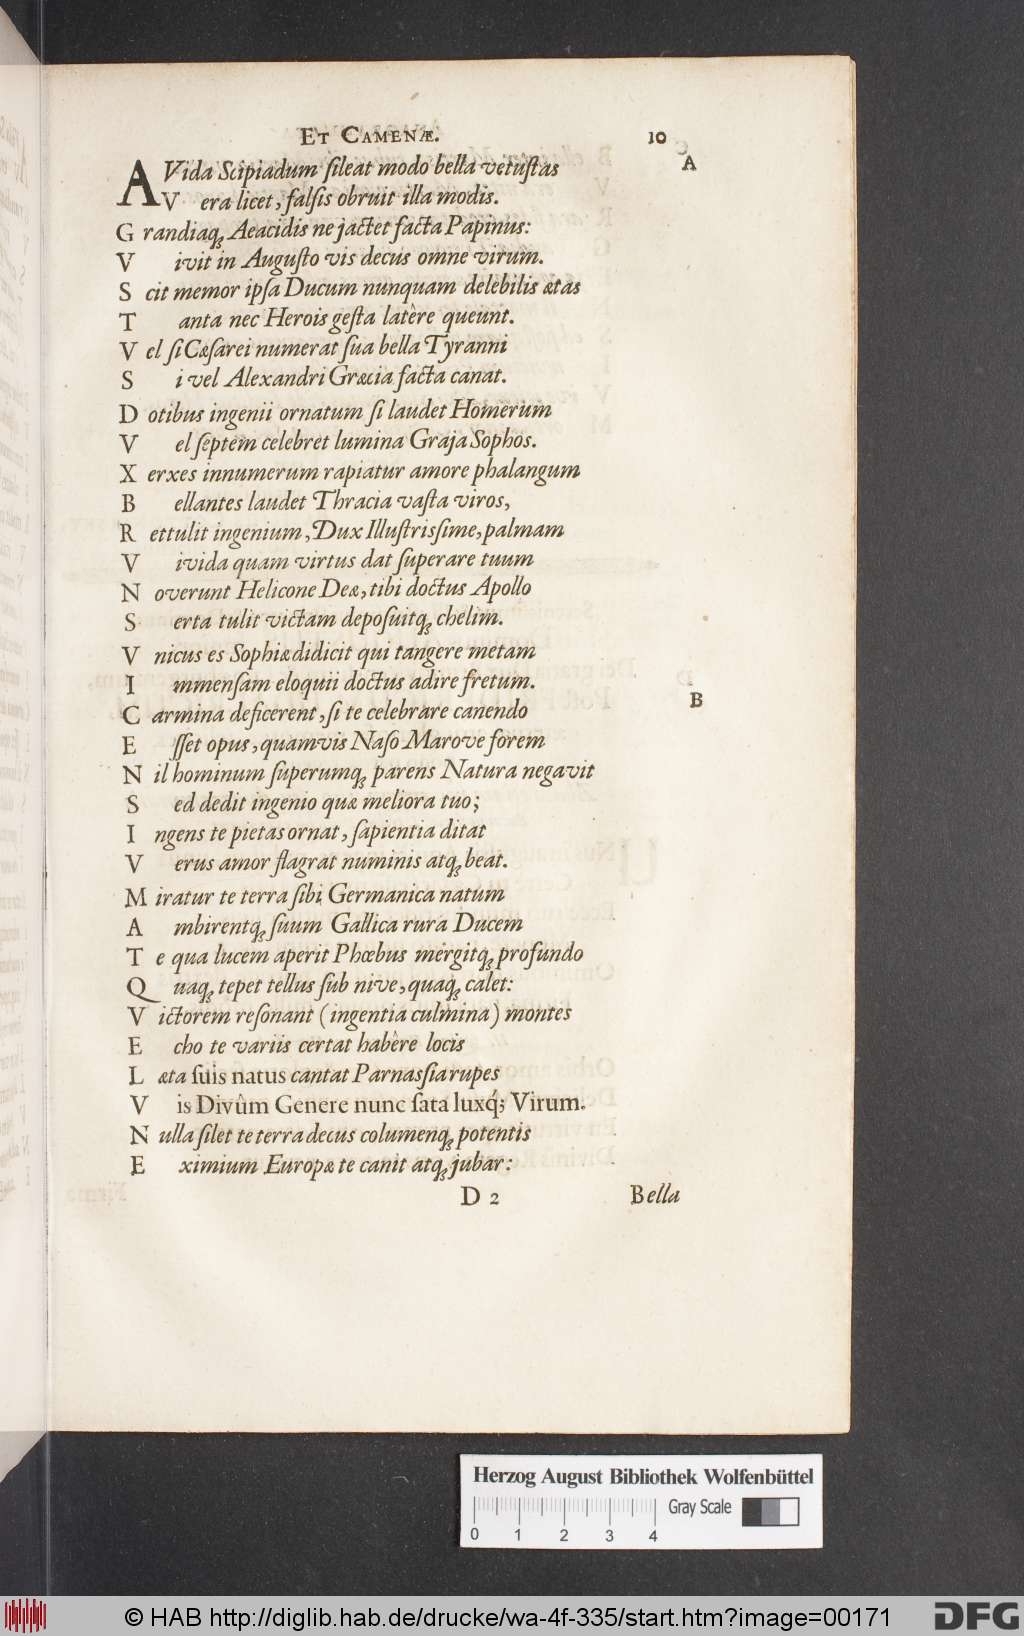 ET CAMENÆ. 10
A
AVida Scipiadum ſileat modo bella vetuſtas
V era licet, falſis obruit illa modis.
G randiaq; Aeacidis ne jactet facta Papinus:
V ivit in Auguſto vis decus omne virum.
S cit memor ipſa Ducum nunquam delebilis ætas
T anta nec Herois geſta latêre queunt.
V el ſi Cæſarei numerat ſua bella Tyranni
S i vel Alexandri Græcia facta canat.
D otibus ingenii ornatum ſi laudet Homerum
V el ſeptem celebret lumina Graja Sophos.
X erxes innumerum rapiatur amore phalangum
B ellantes laudet Thracia vaſta viros,
R ettulit ingenium, Dux Illuſtrisſime, palmam
V ivida quam virtus dat ſuperare tuum
N overunt Helicone Deæ, tibi doctus Apollo
S erta tulit victam depoſuitq; chelim.
V nicus es Sophiæ didicit qui tangere metam
I mmenſam eloquii doctus adire fretum.
C armina deficerent, ſi te celebrare canendo
B
E ſſet opus, quamvis Naſo Marove forem
N il hominum ſuperumq; parens Natura negavit
S ed dedit ingenio quæ meliora tuo;
I ngens te pietas ornat, ſapientia ditat
V erus amor flagrat numinis atq; beat.
M iratur te terra ſibi Germanica natum
A mbirentq; ſuum Gallica rura Ducem
T e qua lucem aperit Phœbus mergitq; profundo
Q uaq; tepet tellus ſub nive, quaq; calet:
V ictorem reſonant (ingentia culmina) montes
E cho te variis certat habêre locis
L æta ſuis natus cantat Parnasſia rupes
V is Divûm Genere nunc ſata luxq́; Virum.
N ulla ſilet te terra decus columenq; potentis
E ximium Europæ te canit atq; jubar:
D 2 Bella
Herzog August Bibliothek Wolfenbüttel
Gray Scale
0 1 2 3 4
© HAB http://diglib.hab.de/drucke/wa-4f-335/start.htm?image=00171
DFG